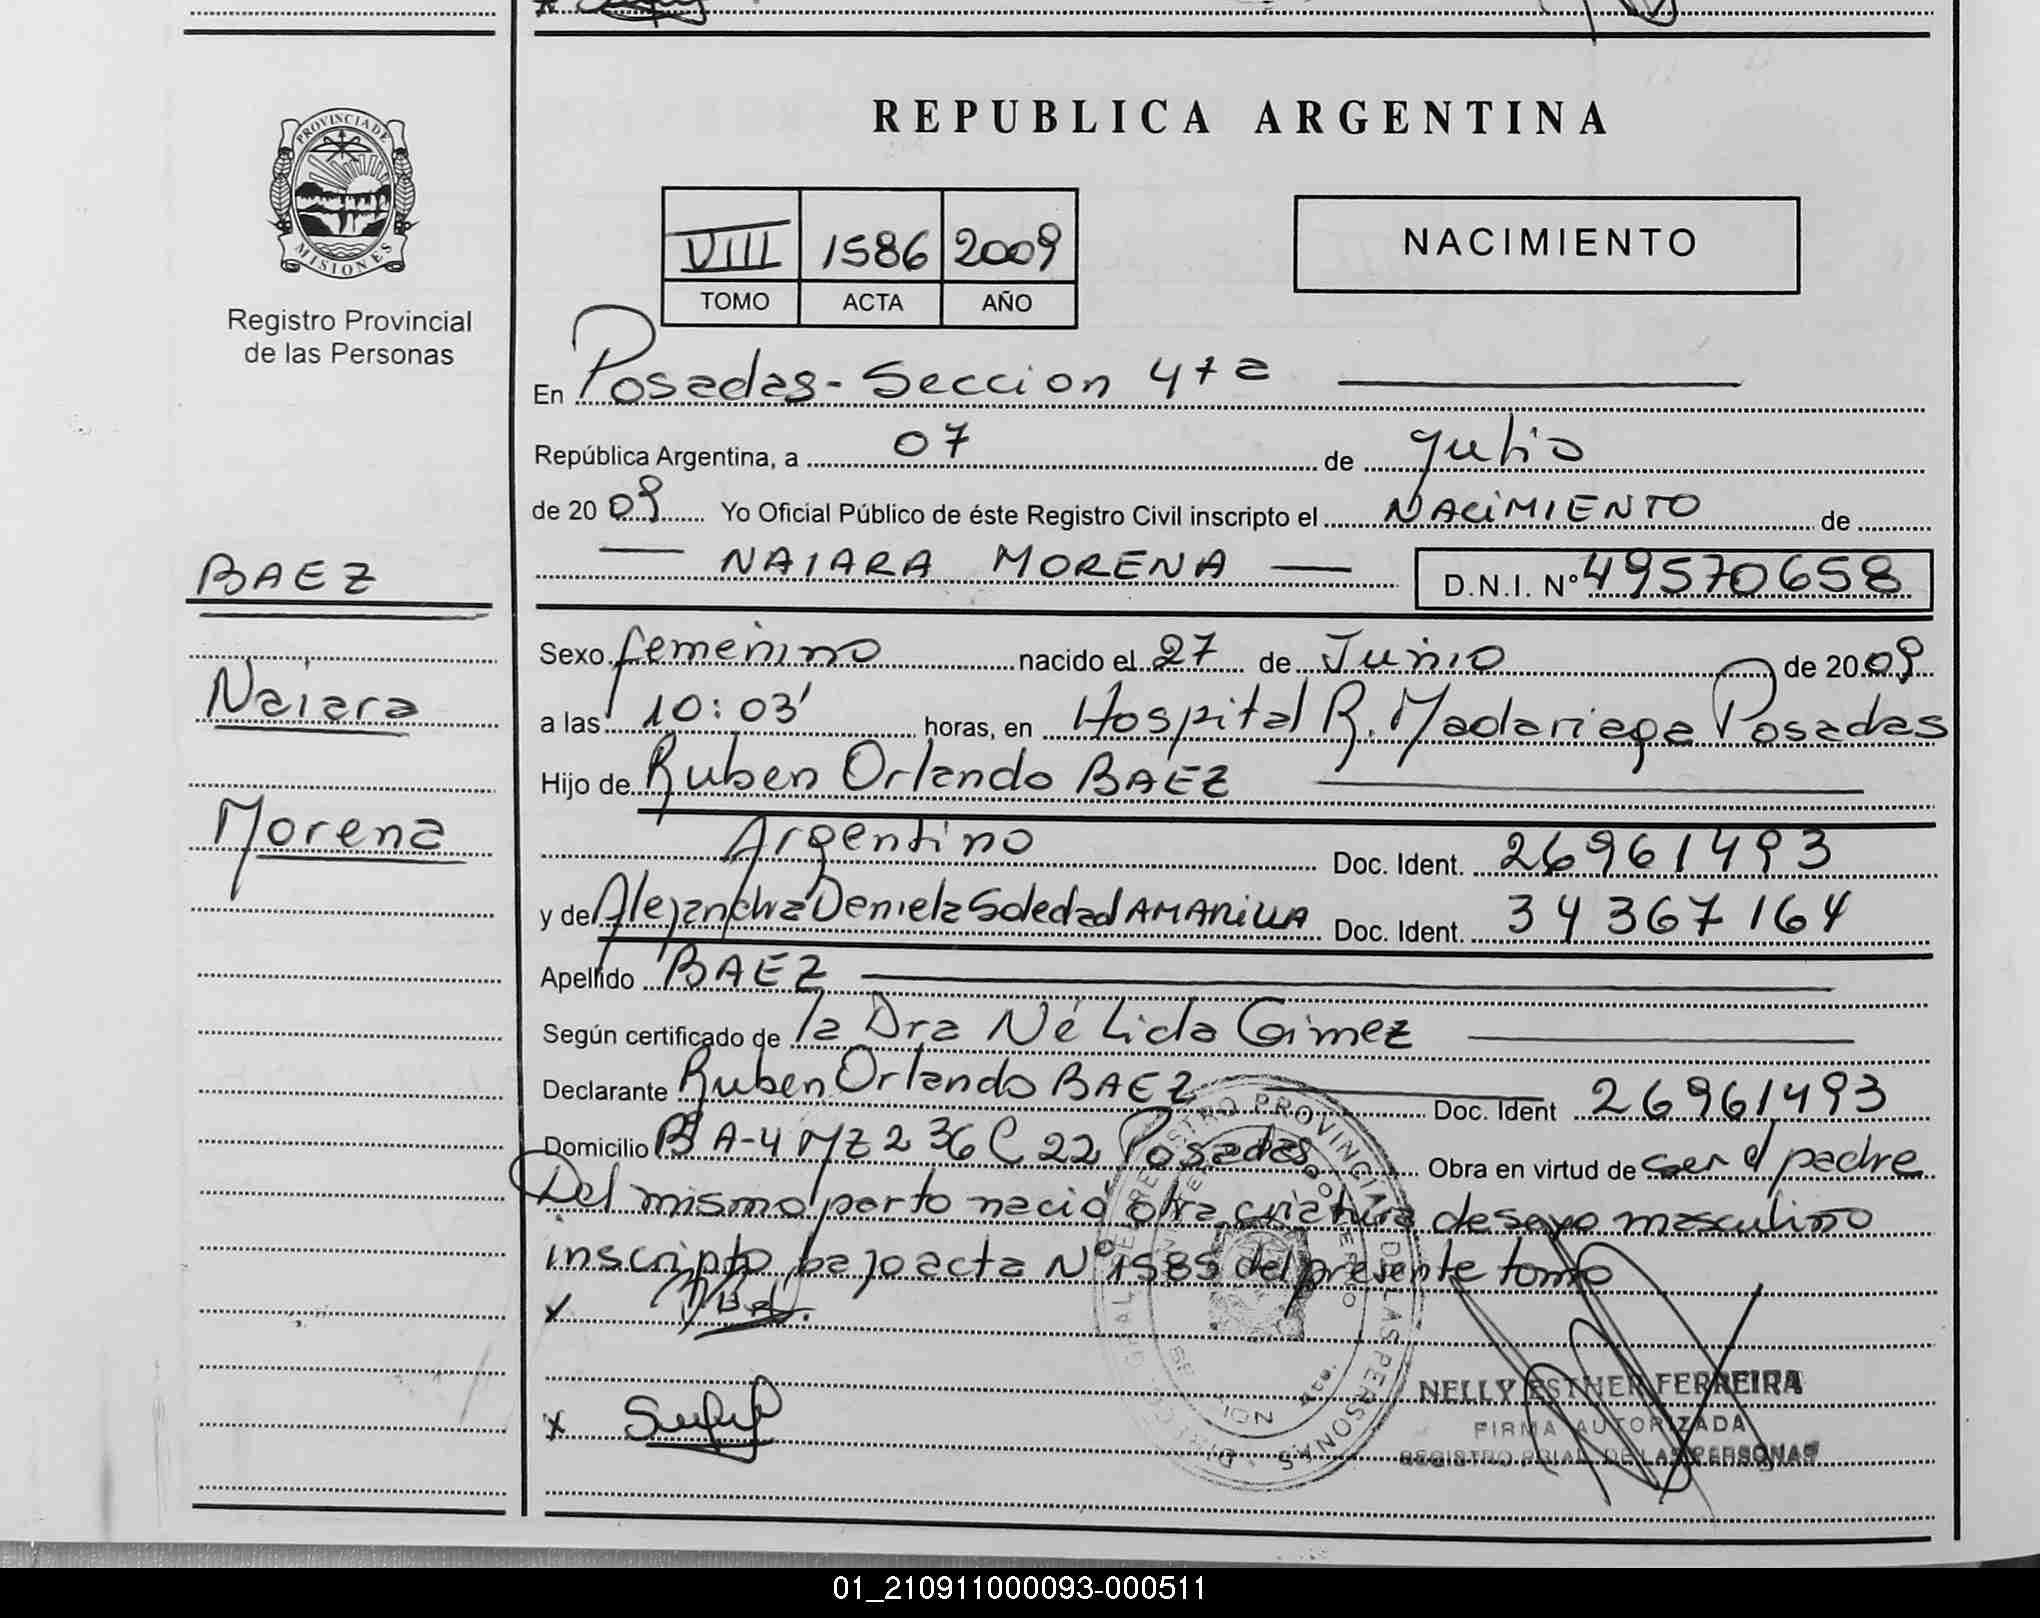 REPUBLICA ARGENTINA
PROVINCIA DE
MISIONES
Registro Provincial
de las Personas
VIII 1586 2009
TOMO ACTA AÑO
NACIMIENTO
En Posadas - Seccion 4ta
República Argentina, a 07 de Julio
de 20 09 Yo Oficial Público de éste Registro Civil inscripto el NACIMIENTO de
NAIARA MORENA D.N.I. Nº 49570658
BAEZ
Naiara
Morena
Sexo femenino nacido el 27 de Junio de 20 09
a las 10:03' horas, en Hospital R. Madariaga Posadas
Hijo de Ruben Orlando BAEZ
Argentino Doc. Ident. 26961493
y de Alejandra Daniela Soledad AMARILLA Doc. Ident. 34367164
Apellido BAEZ
Según certificado de la Dra Nélida Gimez
Declarante Ruben Orlando BAEZ Doc. Ident 26961493
Domicilio B A-4 MZ 236 C 22 Posadas Obra en virtud de ser el padre
Del mismo parto nació otra criatura de sexo masculino
inscripto bajo acta Nº 1585 del presente tomo
x
x
NELLY ESTHER FERREIRA
FIRMA AUTORIZADA
REGISTRO PCIAL. DE LAS PERSONAS
01_210911000093-000511